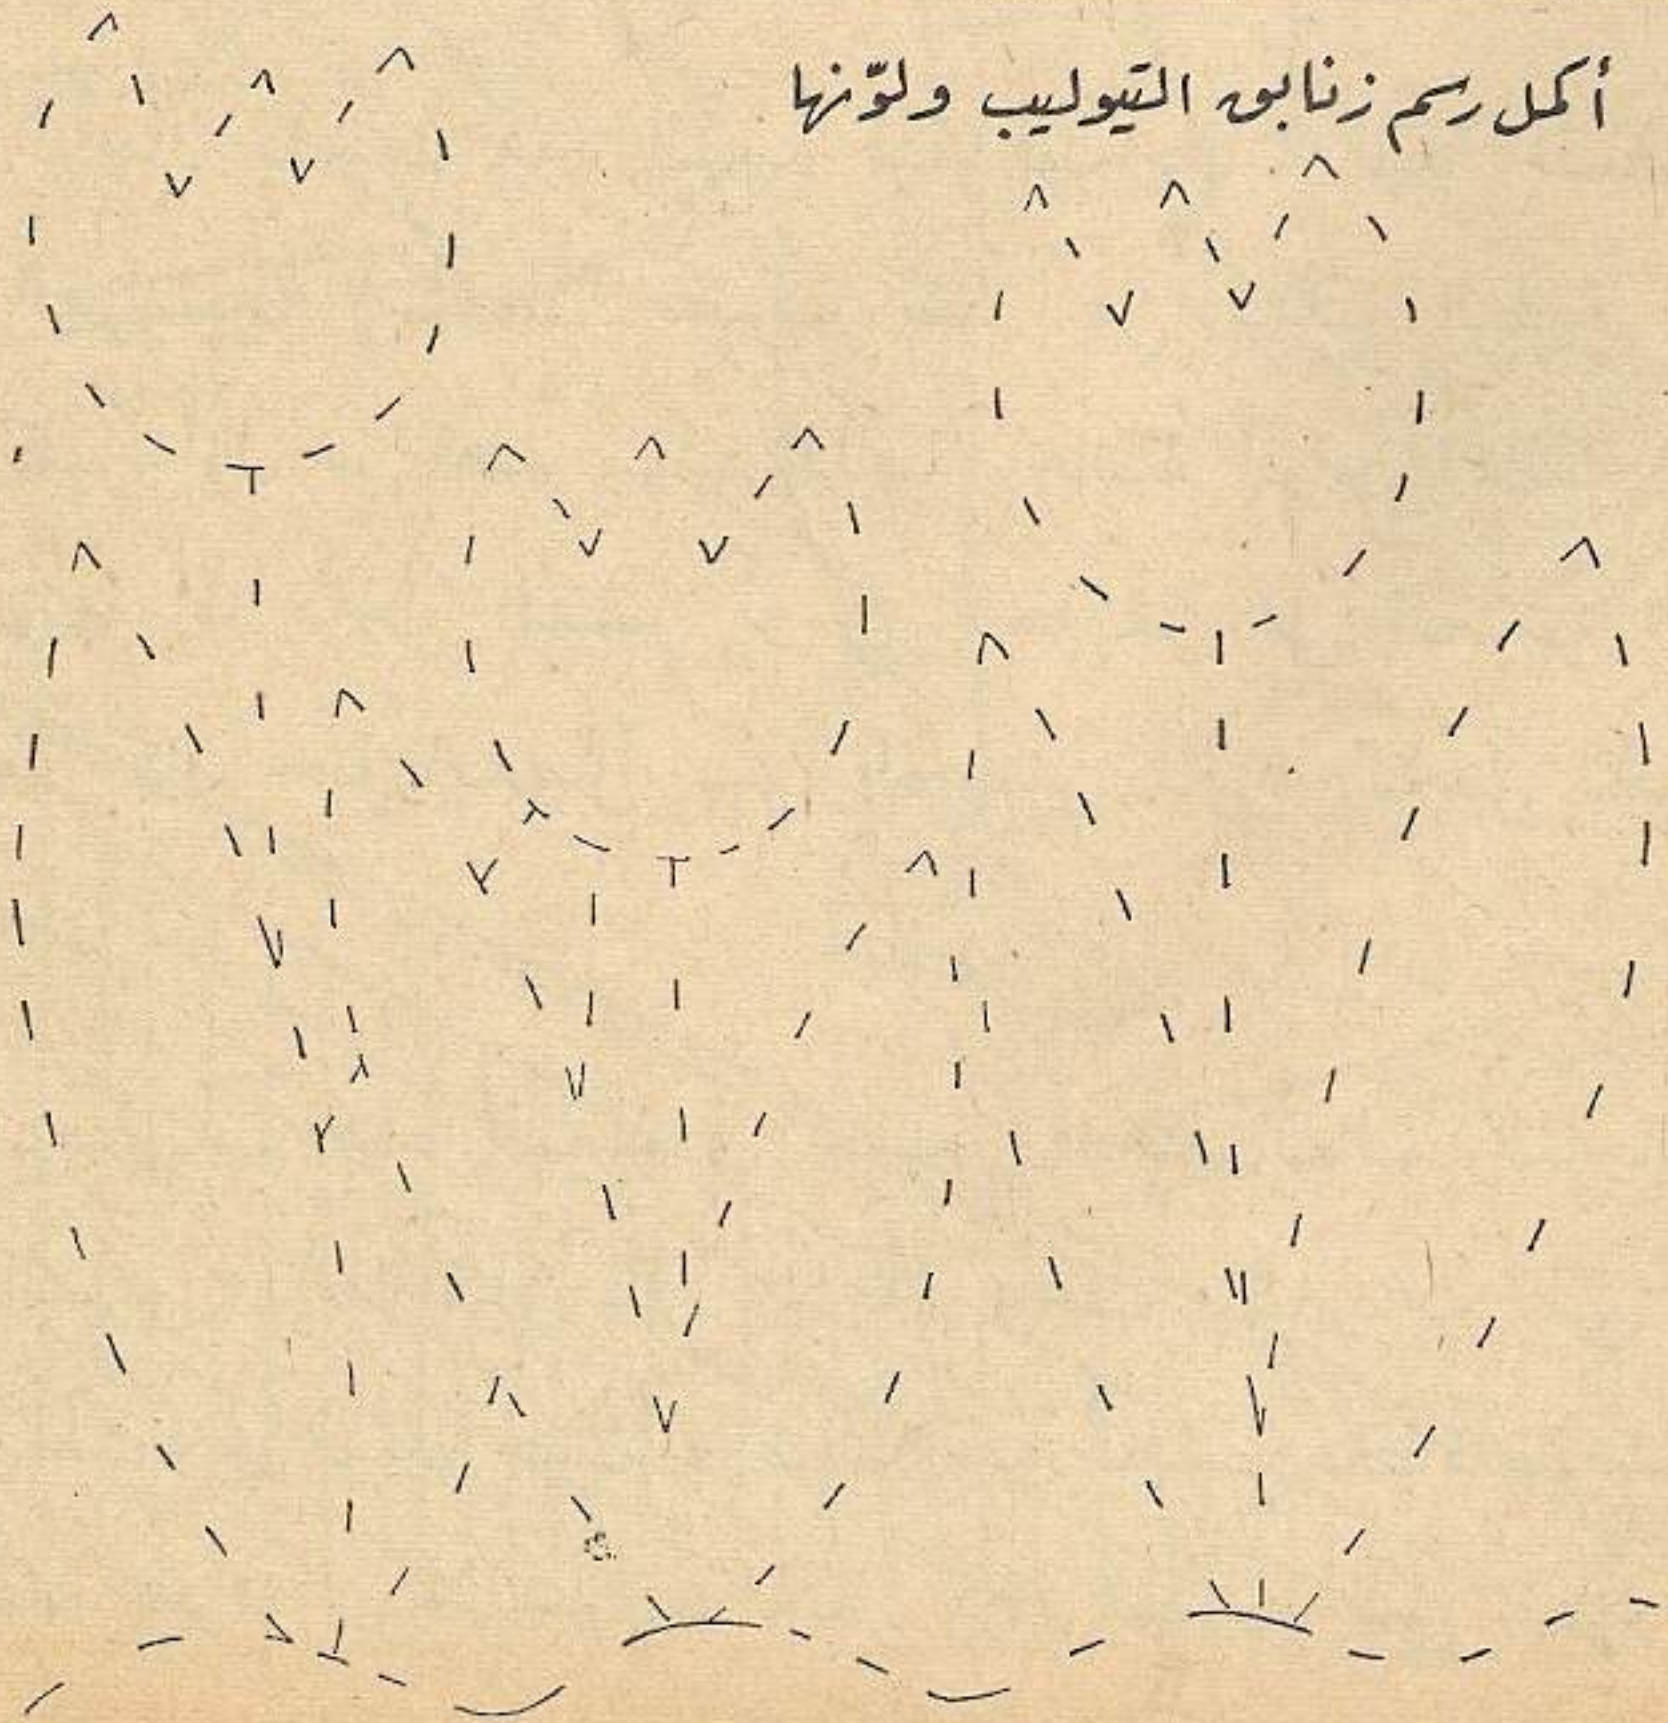 أكمل رسم زنابق التيوليب ولوّنها